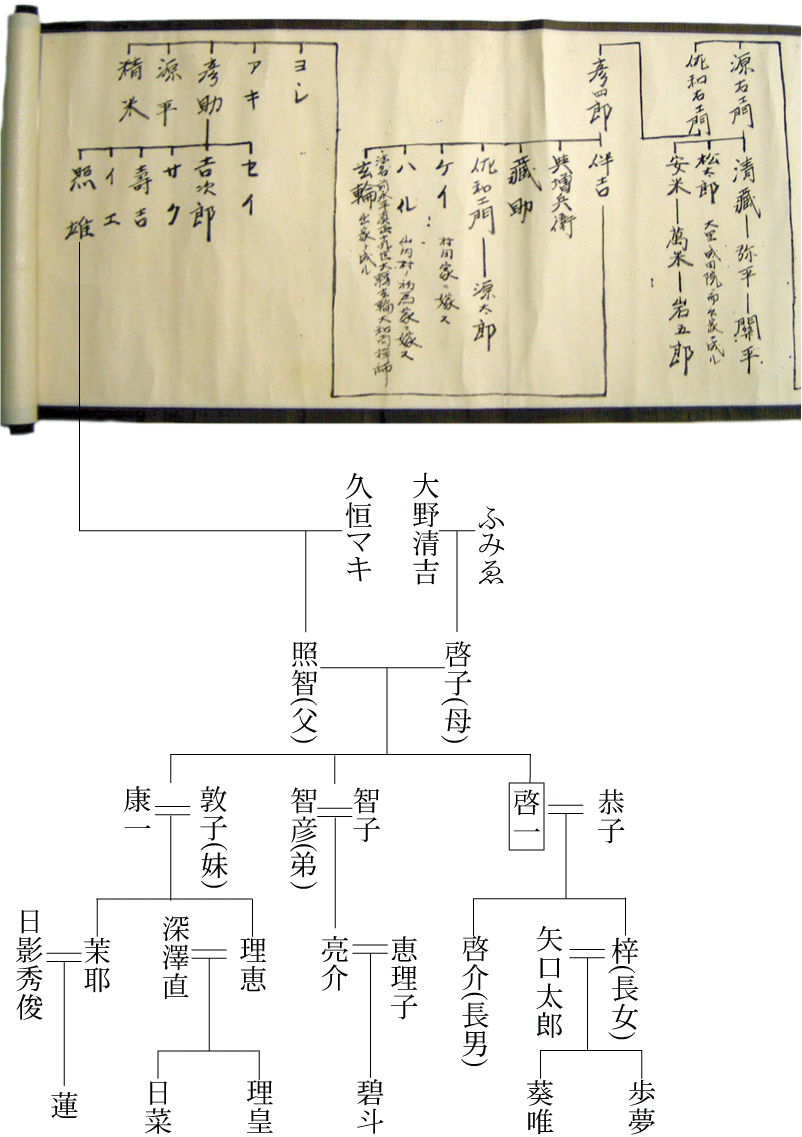 源右エ門
佐和右エ門
清藏
弥平
關平
松太郎
安米
萬米
岩五郎
彦四郎
伴吉
兵増兵衛
藏助
佐和エ門
源太郎
ケイ
村岡家ニ嫁ス
ハル
玄輪
出家ト成ル
ヨシ
アキ
彦助
源平
精米
セイ
吉次郎
サク
壽吉
イエ
照雄
ふみゑ
大野清吉
久恒マキ
啓子(母)
照智(父)
恭子
啓一
智子
智彦(弟)
敦子(妹)
康一
梓(長女)
矢口太郎
啓介(長男)
恵理子
亮介
理恵
深澤直
茉耶
日影秀俊
歩夢
葵唯
碧斗
理皇
日菜
蓮